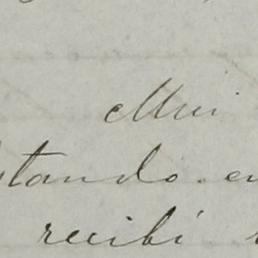 Mui
stando en
recibi